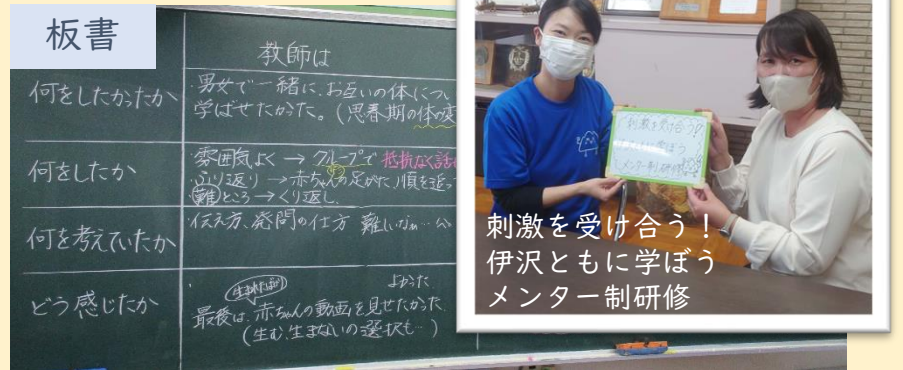 板書
教師は
何をしたかったか
・男女で一緒に、お互いの体につい
学ばせたかった。(思春期の体の変
何をしたか
・雰囲気よく → グループで 抵抗なく話
・ふり返り → 赤ちゃんの足がた、順を追っ
難ところ → くり返し
何を考えていたか
・伝え方、発問の仕方 難しいなぁ…
どう感じたか
よかった
最後は、赤ちゃんの動画を見せたかった
(生む、生まないの選択も…)
刺激を受け合う!
メンター制研修
刺激を受け合う!
伊沢ともに学ぼう
メンター制研修